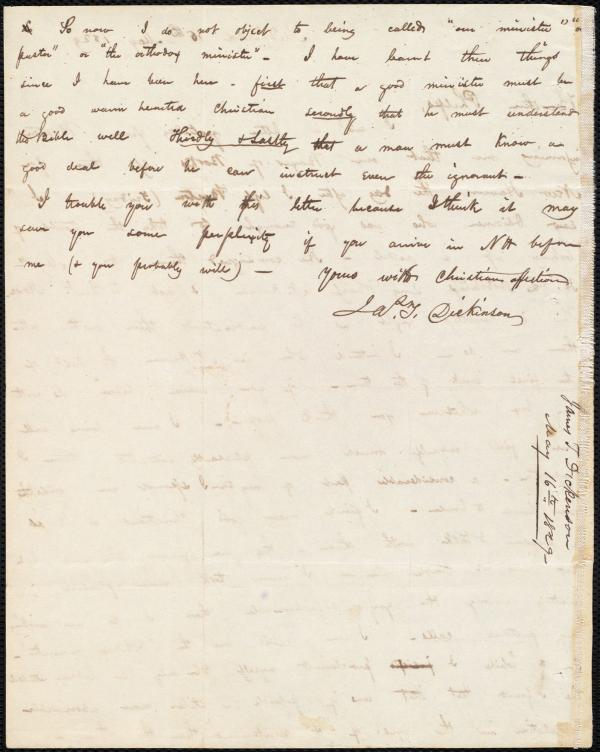 & So now I do not object to being called "our minister" "o
pastor" or "the orthodox minister" - I have learnt three things
since I have been here - first that a good minister must be
a good warm hearted Christian secondly that he must understand
the Bible well Thirdly & Lastly that a man must know a
good deal before he can instruct even the ignorant -
I trouble you with this letter because I think it may
save you some perplexity if you arrive in NH before
me (& you probably will) - Yours with Christian affection
Jas. T. Dickinson
James T. Dickenson
May 16th 1829-